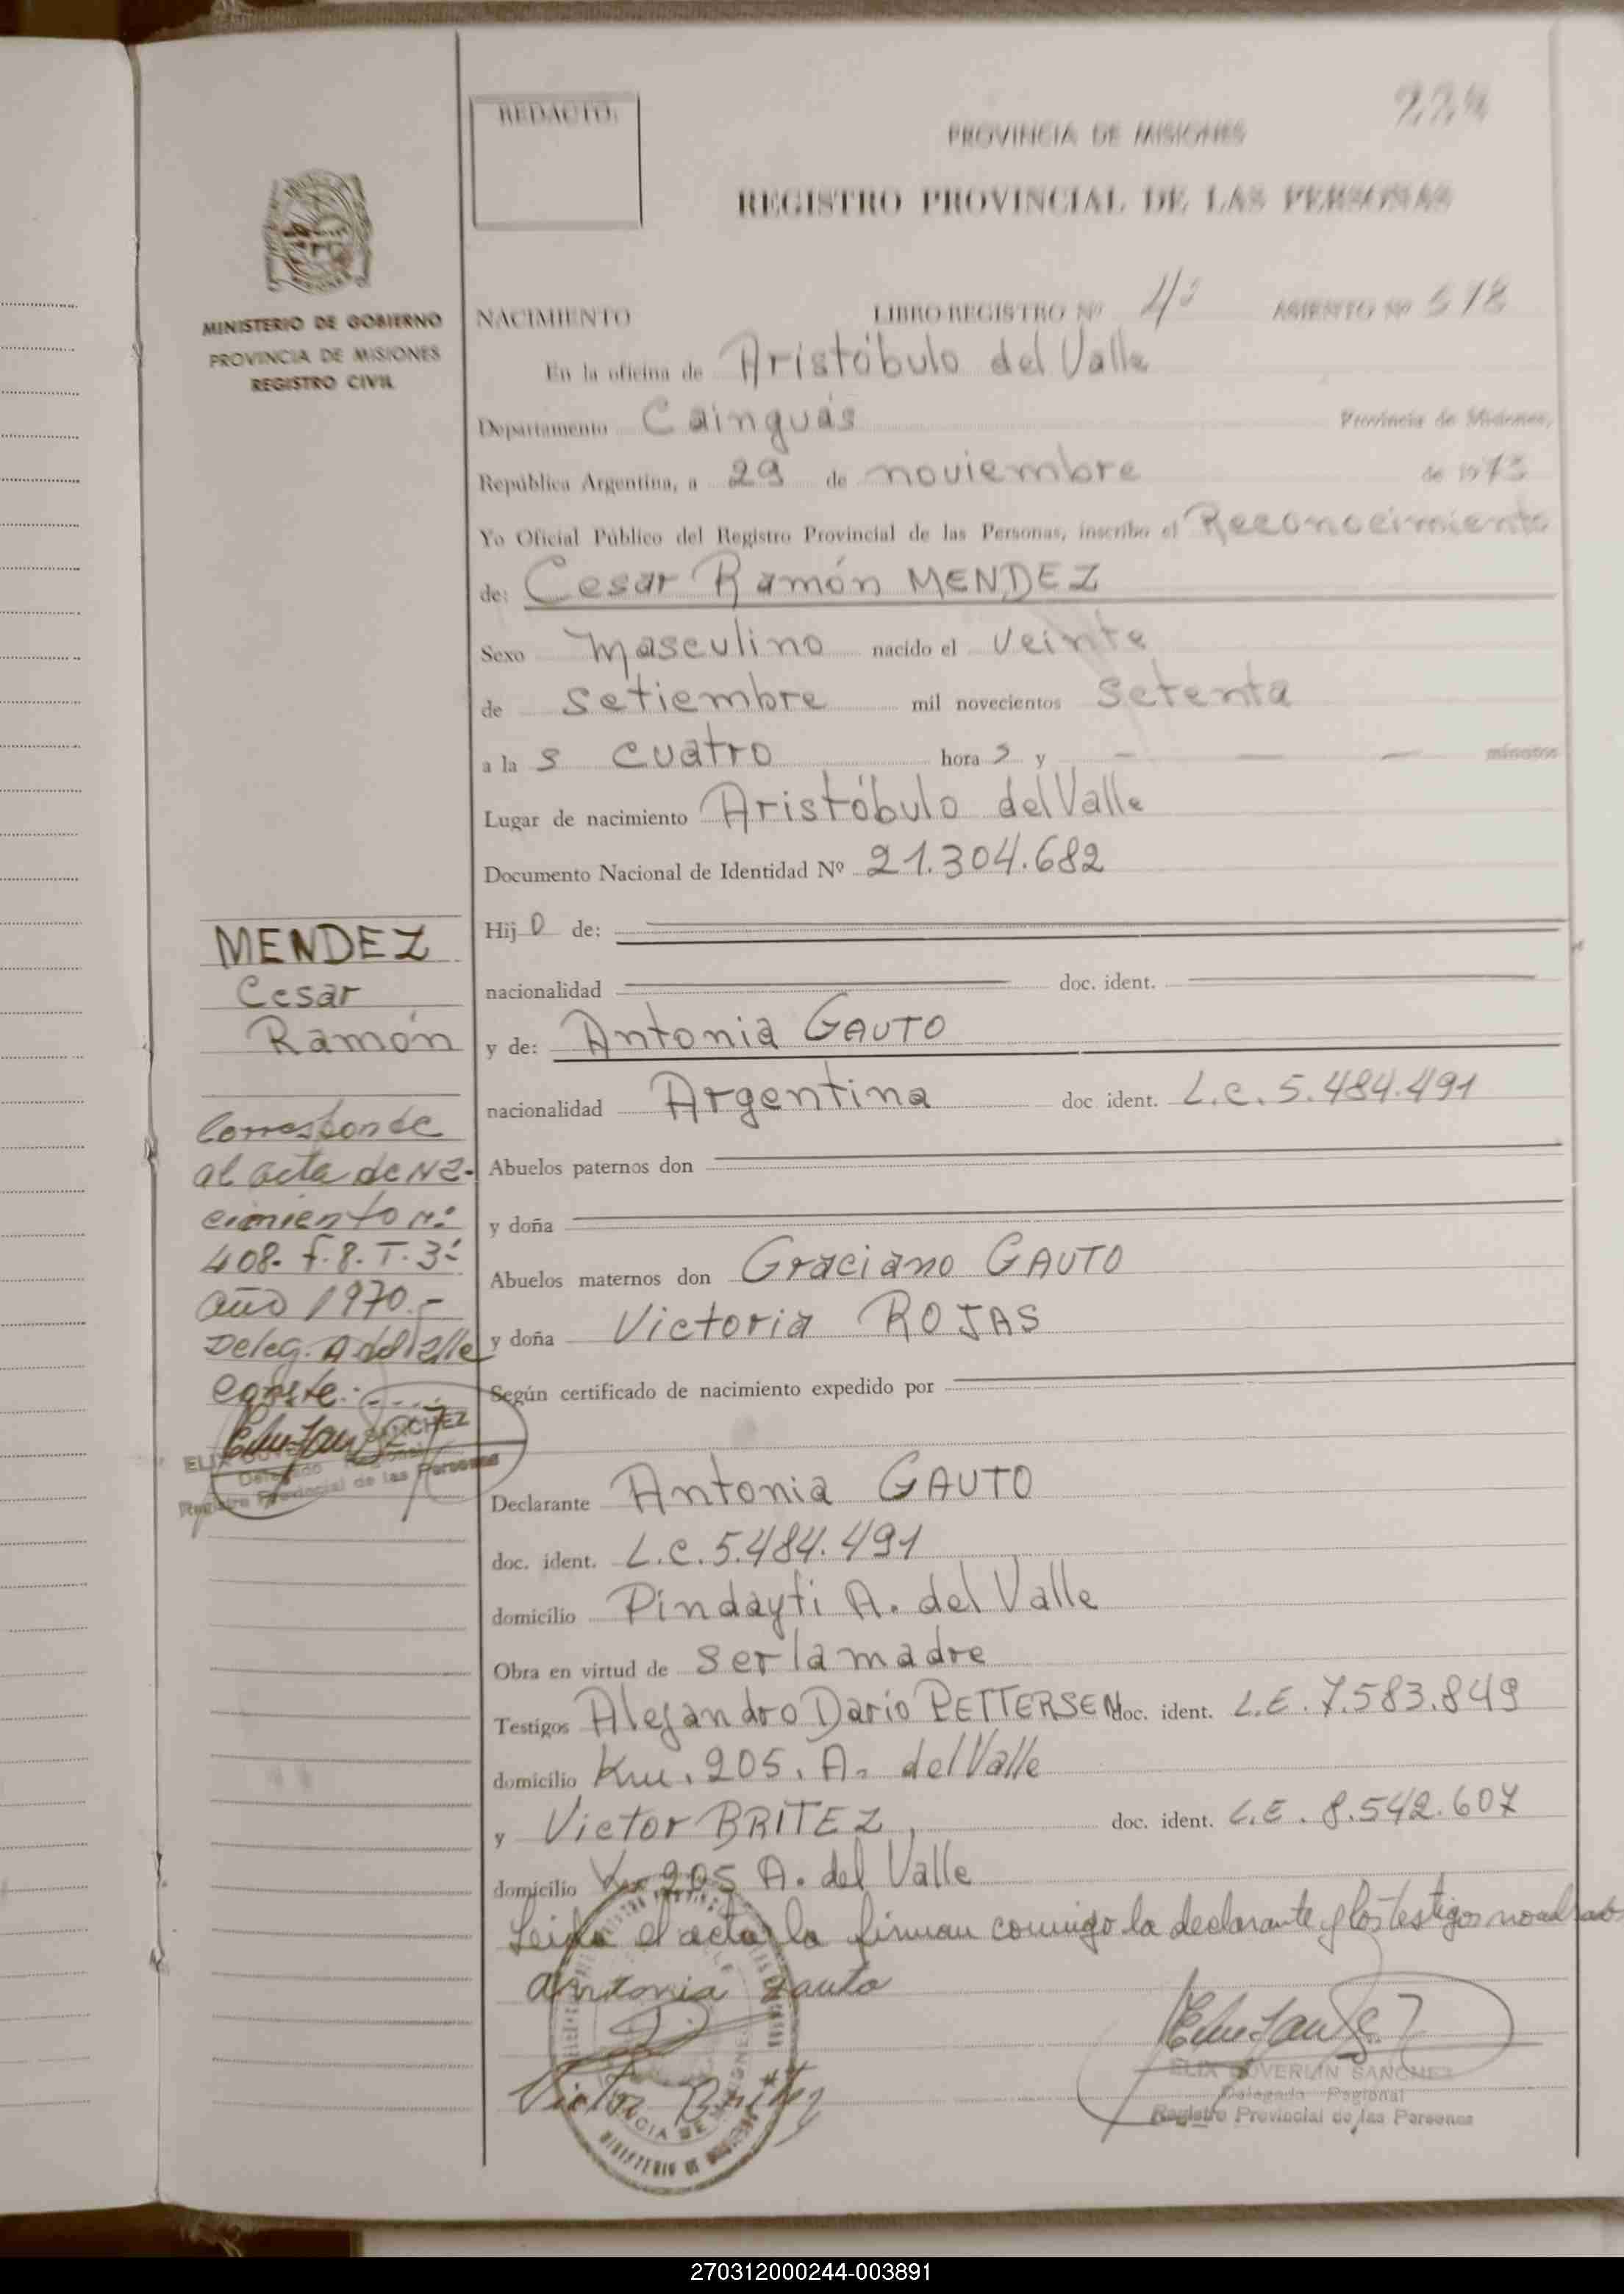 224
REDACTO:
PROVINCIA DE MISIONES
REGISTRO PROVINCIAL DE LAS PERSONAS
MINISTERIO DE GOBIERNO
PROVINCIA DE MISIONES
REGISTRO CIVIL
NACIMIENTO LIBRO REGISTRO Nº 4º ASIENTO Nº 578
En la oficina de Aristóbulo del Valle
Departamento Cainguás Provincia de Misiones,
República Argentina, a 29 de noviembre de 1973
Yo Oficial Público del Registro Provincial de las Personas, inscribo el Reconocimiento
de: Cesar Ramón MENDEZ
Sexo Masculino nacido el veinte
de setiembre mil novecientos setenta
a la s cuatro hora s y — — — minutos
Lugar de nacimiento Aristóbulo del Valle
Documento Nacional de Identidad Nº 21.304.682
Hij o de:
nacionalidad doc. ident.
y de: Antonia GAUTO
nacionalidad Argentina doc ident. L.C. 5.484.491
Abuelos paternos don
y doña
Abuelos maternos don Graciano GAUTO
y doña Victoria ROJAS
Según certificado de nacimiento expedido por
Declarante Antonia GAUTO
doc. ident. L.C. 5.484.491
domicilio Pindayti A. del Valle
Obra en virtud de ser la madre
Testigos Alejandro Dario PETTERSEN doc. ident. L.E. 7.583.849
domicilio Km. 205. A. del Valle
y Victor BRITEZ, doc. ident. L.E. 8.542.607
domicilio Km 205 A. del Valle
Leida el acta, la firman conmigo la declarante y los testigos nombrados
Antonia Gauto
Victor Britez
ELIX DUVERLIN SANCHEZ
Delegado Regional
Registro Provincial de las Personas
MENDEZ
Cesar
Ramón
Corresponde
al acta de Na-
cimiento Nº
408. F. 8. T. 3º
año 1970.-
Deleg. A del Valle
Conste: - - - -
SANCHEZ
Delegado Regional
Registro Provincial de las Personas
270312000244-003891